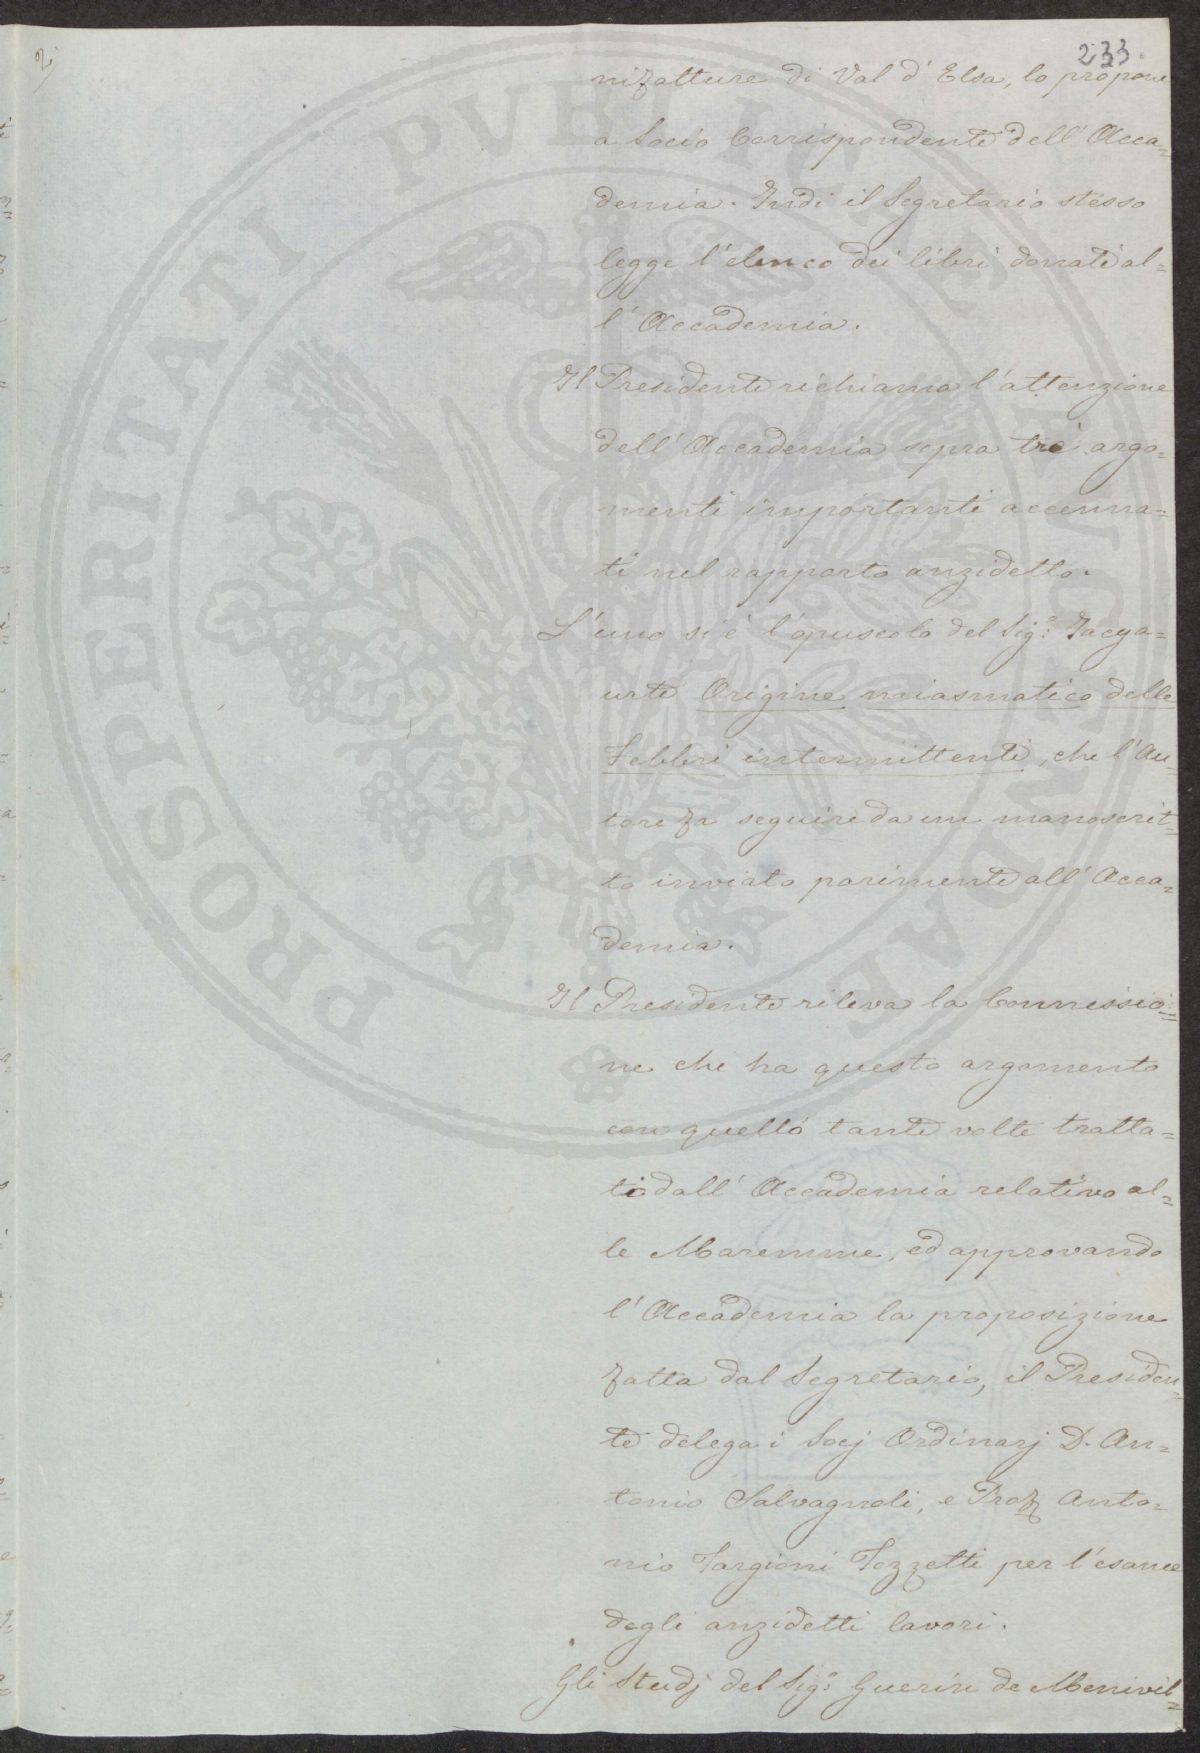 2
233.
nifatture di Val d' Elsa, lo propone
a Socio Corrispondente dell' Acca=
demia. Indi il Segretario stesso
legge l'elenco dei libri donati al=
l' Accademia.
Il Presidente richiama l'attenzione
dell' Accademia sopra tre argo=
menti importanti accenna=
ti nel rapporto anzidetto.
L'uno si è l'opuscolo del Sig.r
urte Origine miasmatica delle
Febbri intermittenti, che l'Au=
tore fa seguire da un manoscrit=
to inviato parimente all' Acca=
demia.
Il Presidente rileva la Connessio=
ne che ha questo argomento
con quello tante volte tratta=
to dall' Accademia relativo al=
le Maremme, ed approvando
l' Accademia la proposizione
fatta dal Segretario, il Presiden=
te delega i Socj Ordinarj D. An=
tonio Salvagnoli, e Prof. Anto=
nio Targioni Tozzetti per l'esame
degli anzidetti lavori.
Gli Studj del Sig.r Guerin de Menivil=
PROSPERITATI PVBLICAE AVGENDAE